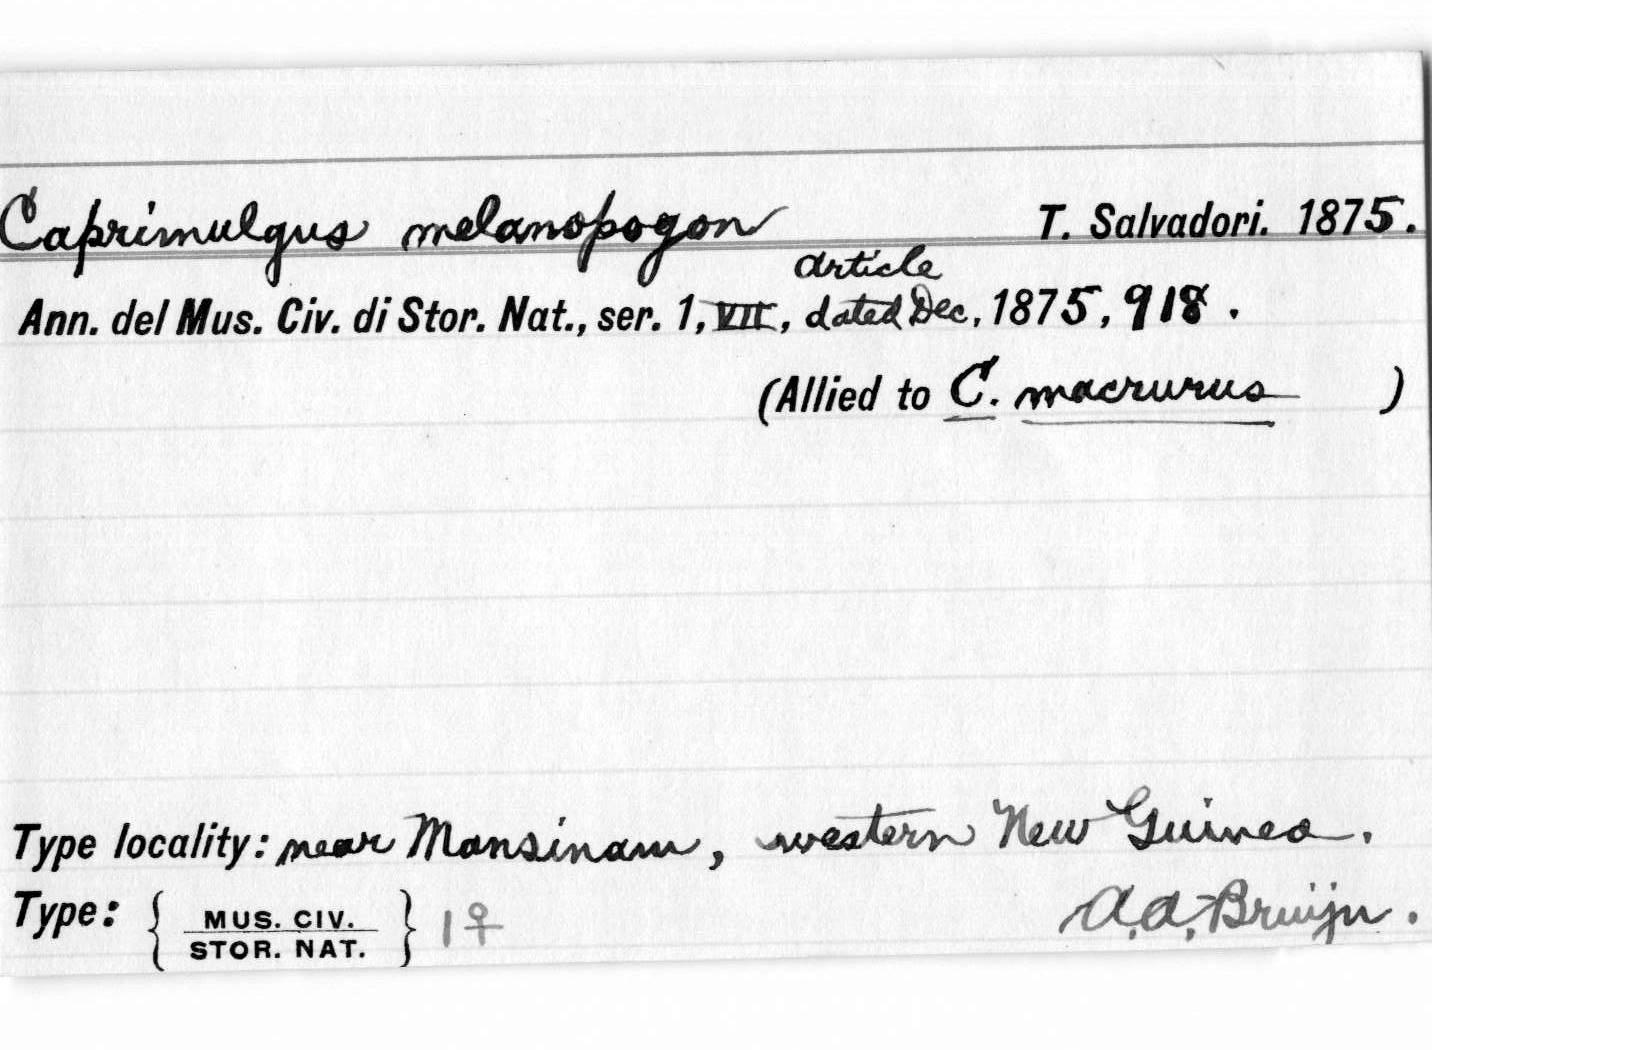 Caprimulgus melanopogon T. Salvadori. 1875.
article
Ann. del Mus. Civ. di Stor. Nat., ser. 1, VII, dated Dec, 1875, 918.
(Allied to C. macrurus )
Type locality: near Mansinam, western New Guinea.
Type: { MUS. CIV. STOR. NAT. } 1♀ A.A. Bruijn.